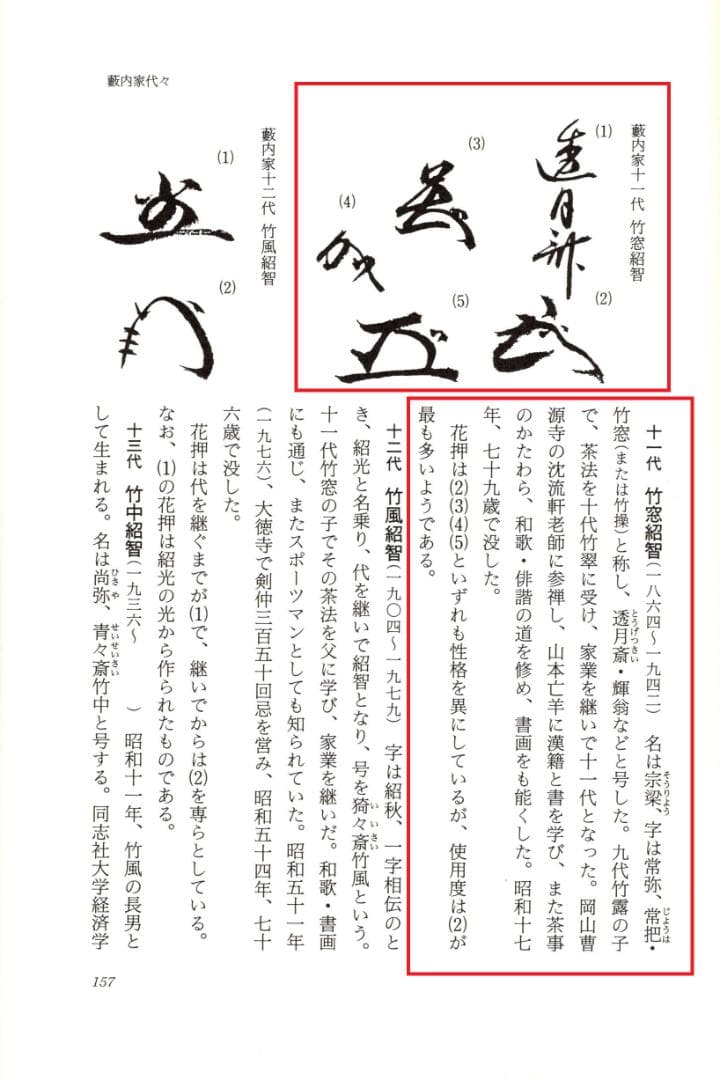 藪内家代々
藪内家十一代　竹窓紹智
(1)
(2)
(3)
(4)
(5)
藪内家十二代　竹風紹智
(1)
(2)
十一代　竹窓紹智（一八六四〜一九四二）　名は宗梁、字は常弥、常把・
そうりよう
じようは
竹窓（または竹操）と称し、透月斎・輝翁などと号した。九代竹露の子
とうげつさい
で、茶法を十代竹翠に受け、家業を継いで十一代となった。岡山曹
源寺の沈流軒老師に参禅し、山本亡羊に漢籍と書を学び、また茶事
のかたわら、和歌・俳諧の道を修め、書画をも能くした。昭和十七
年、七十九歳で没した。
花押は(2)(3)(4)(5)といずれも性格を異にしているが、使用度は(2)が
最も多いようである。
十二代　竹風紹智（一九〇四〜一九七九）　字は紹秋、一字相伝のと
き、紹光と名乗り、代を継いで紹智となり、号を猗々斎竹風という。
いいさい
十一代竹窓の子でその茶法を父に学び、家業を継いだ。和歌・書画
にも通じ、またスポーツマンとしても知られていた。昭和五十一年
（一九七六）、大徳寺で剣仲三百五十回忌を営み、昭和五十四年、七十
六歳で没した。
花押は代を継ぐまでが(1)で、継いでからは(2)を専らとしている。
なお、(1)の花押は紹光の光から作られたものである。
十三代　竹中紹智（一九三六〜　　　）　昭和十一年、竹風の長男と
して生まれる。名は尚弥、青々斎竹中と号する。同志社大学経済学
ひさや
せいせいさい
157